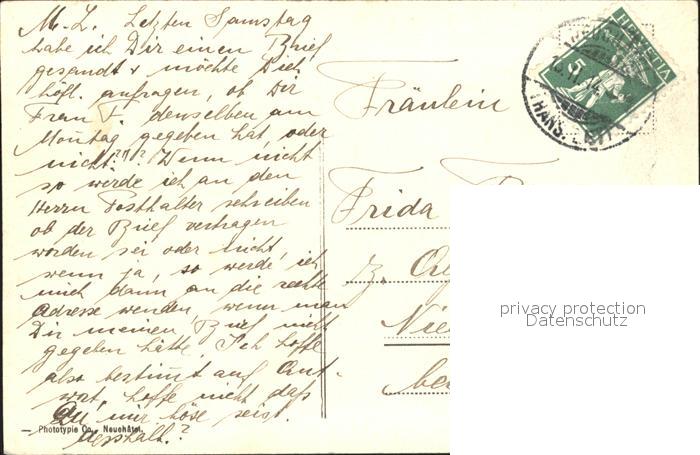 M. L. Letzten Samstag
habe ich Dir einen Brief
gesandt & möchte Dich
höfl. anfragen, ob Dir
Frau F. denselben am
Montag gegeben hat, oder
nicht?!? Wenn nicht
so würde ich an den
Herrn Posthalter schreiben
ob der Brief vertragen
worden sei oder nicht,
wenn ja, so werde ich
mich dann an die rechte
Adresse wenden, wenn man
Dir meinen Brief nicht
gegeben hätte. Ich hoffe
also bestimt auf Ant-
wort, hoffe nicht daß
Du mir böse seist.
Weshalb?
Phototypie Co., Neuchâtel.
HELVETIA
5
TRANS.
Fräulein
Frida
z.
Nie
be
privacy protection
Datenschutz